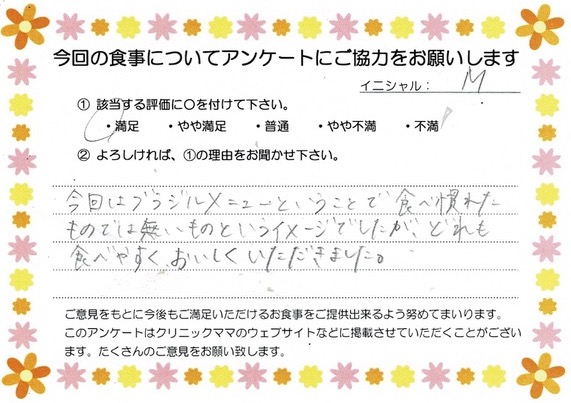 今回の食事についてアンケートにご協力をお願いします
イニシャル： M
① 該当する評価に○を付けて下さい。
・満足 ・やや満足 ・普通 ・やや不満 ・不満
② よろしければ、①の理由をお聞かせ下さい。
今回はブラジルメニューということで食べ慣れた
ものでは無いものというイメージでしたが、どれも
食べやすく、おいしくいただきました。
ご意見をもとに今後もご満足いただけるお食事をご提供出来るよう努めてまいります。
このアンケートはクリニックママのウェブサイトなどに掲載させていただくことがござい
ます。たくさんのご意見をお願い致します。